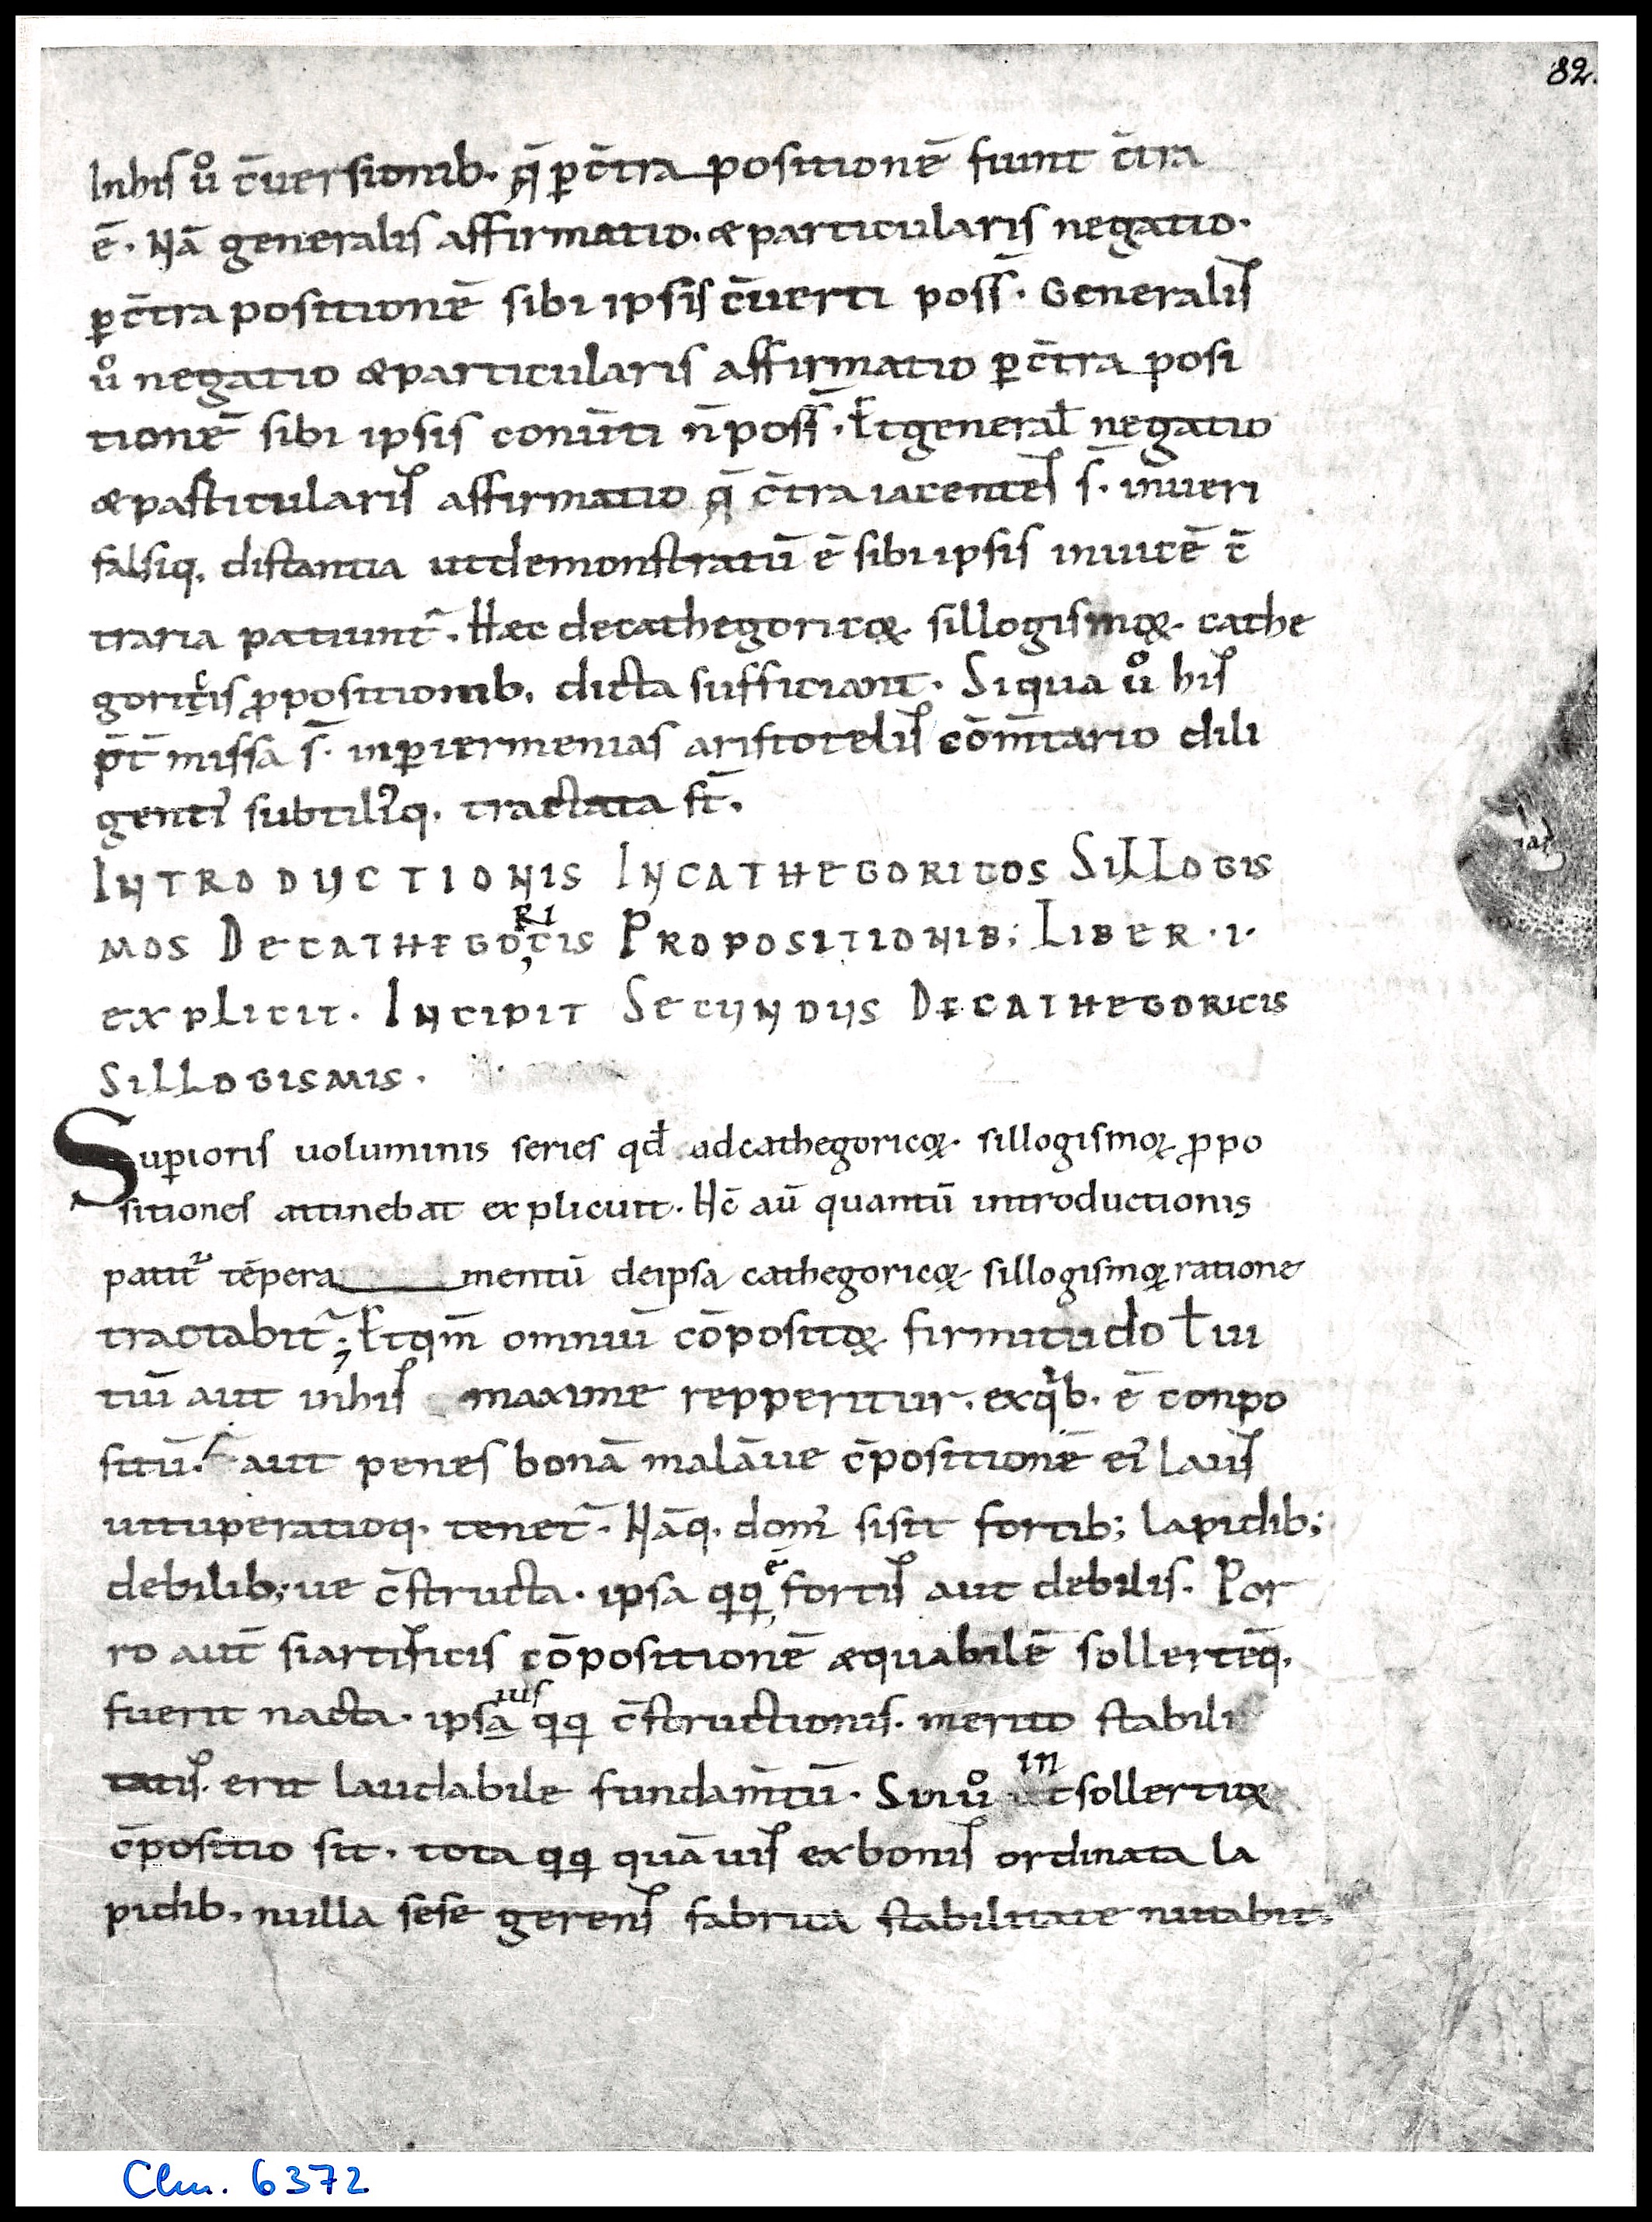 82.
Inhis ů c̄uersionib. q̄ ꝑc̄tra positionē fiunt c̄tra
ē. Nā generalis affirmatio. & particularis negatio.
ꝑc̄tra positionē sibi ipsis c̄uerti poss̄. Generalis
ů negatio & particularis affirmatio ꝑ c̄tra posi
tionē sibi ipsis conūti n̄ poss̄. Et generaƚ negatio
& particularis affirmatio q̄ c̄tra iacentes s̄. inueri
falsiq. distantia ut demonstratū ē sibi ipsis inuicē c̄
traria patiunt̄. Haec decathegoricoꝝ. sillogismoꝝ. cathe
goricis ꝓpositionib. dicta sufficiant. Siqua ů his
p̄t missa s̄. inꝑiermenias aristotelis cōm̄tario dili
gent̓ subtil̓iq. tractata st̄.
INTRODUCTIONIS INCATHEGORICOS SILLOGIS
MOS DECATHEGOCIS PROPOSITIONIB; LIBER .I.
RI
EXPLICIT. INCIPIT SECUNDUS DECATHEGORICIS
SILLOGISMIS.
Suꝑioris uoluminis series qđ adcathegoricoꝝ. sillogismoꝝ ꝓpo
sitiones attinebat explicuit. Hc̄ aū quantū introductionis
patit᷑ tēpera mentū deipsa cathegoricoꝝ sillogismoꝝ ratione
tractabit᷑; Et qm̄ omniū cōpositoꝝ firmitudo ƚ ui
tiū aut inhis maxime repperitur. exqͥb. ē conpo
sitū. aut penes bonā malāue c̄positionē ei̓ laus
uituperatioq. tenet̄. Nāq. dom̓ sisit fortib; lapidib;
debilib;ue c̄structa. ipsa qq ē fortis aut debilis. Por
ro aut̄ siartificis cōpositionē aequabilē sollertēq.
fuerit nacta. ipsa qq c̄structionis. merito stabili
ius
tatis. erit laudabile fundam̄tū. Sinů sollertiox
in
c̄positio sit. tota qq quāuis exbonis ordinata la
pidib, nulla sese gerens fabrica stabilitate nutabit.
Clm. 6372